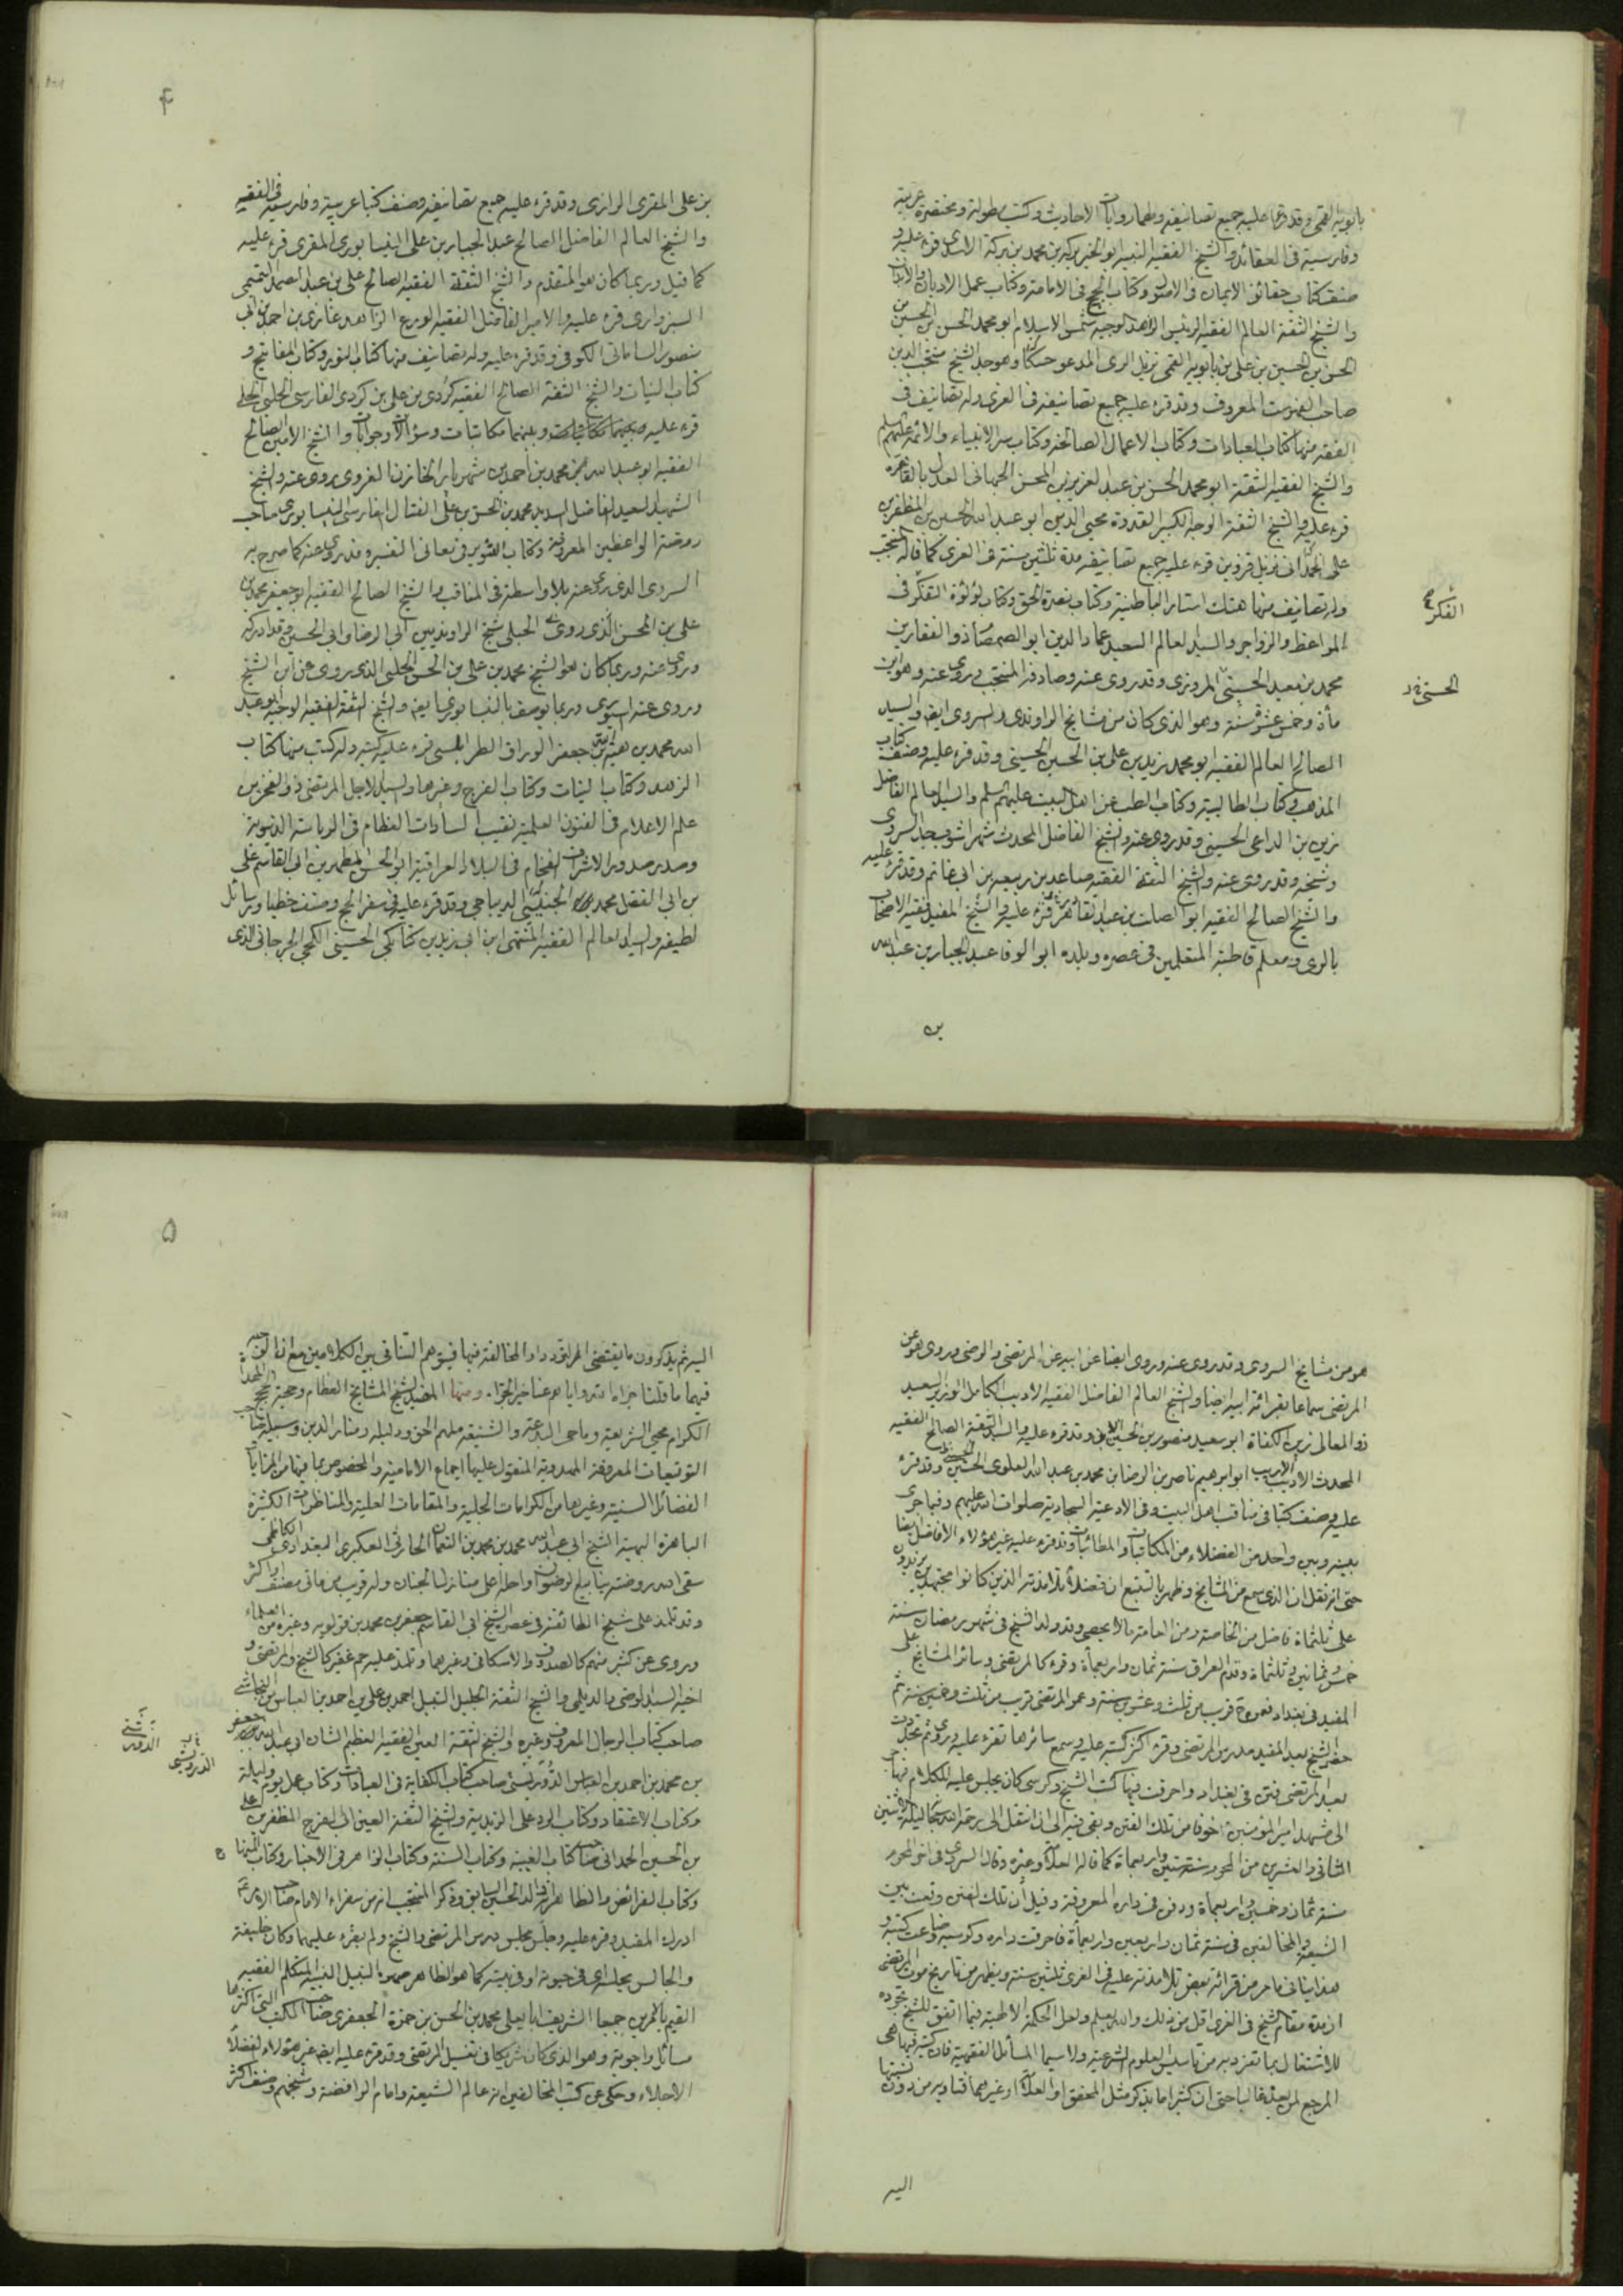 بابويه القمي وقد قرءا عليه جميع تصانيفه ولهما روايات الاحاديث وكتب مطولة ومختصرة عربية
وفارسية في العقائد والشيخ الفقيه النبيه ابو الخير بركة بن محمد بن بركة الاسدي قرء عليه و
صنف كتاب حقائق الايمان في الاصول وكتاب الحجج في الامامة وكتاب عمل الاديان والابدان
والشيخ الثقة العالم الفقيه الرئيس الزاهد الوجيه شمس الاسلام ابو محمد الحسن بن الحسين بن
الحسن بن الحسين بن علي بن بابويه القمي نزيل الري المدعو حسكا وهو جد الشيخ منتجب الدين
صاحب الفهرست المعروف وقد قرء عليه جميع تصانيفه في الغري وله تصانيف في
الفقه منها كتاب العبادات وكتاب الاعمال الصالحة وكتاب سير الانبياء والائمة عليهم السلم
والشيخ الفقيه الثقة ابو محمد الحسن بن عبد العزيز بن المحسن الجبهاني العدل بالقاهرة
قرء عليه والشيخ الثقة الوجه الكبير القدوة محيي الدين ابو عبد الله الحسين بن المظفر بن
علي الحمداني نزيل قزوين قرء عليه جميع تصانيفه مدة ثلثين سنة في الغري كما قاله المنتجب
وله تصانيف منها هتك استار الباطنية وكتاب نصرة الحق وكتاب لؤلؤة التفكر في
الفكر
المواعظ والزواجر والسيد العالم السعيد عماد الدين ابو الصمصام ذو الفقار بن
محمد بن معبد الحسيني المروزي وقد روى عنه وصادفه المنتجب يروي عنه وهو ابن
الحسني
مأة وخمس عشرة سنة وهو الذي كان من مشايخ الراوندي والسروي ايضا والسيد
الصالح العالم الفقيه ابو محمد زيد بن علي بن الحسين الحسيني وقد قرء عليه وصنف كتاب
المذهب وكتاب الطالبية وكتاب الطب عن اهل البيت عليهم السلم والسيد العالم الفاضل
زين بن الداعي الحسيني وقد روى عنه والشيخ الفاضل المحدث شهراشوب جد السروي
وشيخه وقد روى عنه والشيخ الثقة الفقيه صاعد بن ربيعة بن ابي غانم وقد قرء عليه
والشيخ الصالح الفقيه ابو الصلت بن عبد القادر قرء عليه والشيخ المفيد فقيه الاصحاب
بالري ومعلم قاطبة المتعلمين في عصره وبلده ابو الوفا عبد الجبار بن عبد الله
بن
۴
بن علي المقري الرازي وقد قرء عليه جميع تصانيفه وصنف كتبا عربية وفارسية في الفقه
والشيخ العالم الفاضل الصالح عبد الجبار بن علي النيسابوري المقري قرء عليه
كما قيل وربما كان هو المتقدم والشيخ الثقة الفقيه الصالح علي بن عبد الصمد التميمي
السبزواري قرء عليه والامير الفاضل الفقيه الورع الزاهد غازي بن احمد بن ابي
منصور الساماني الكوفي وقد قرء عليه وله تصانيف منها كتاب النور وكتاب المفاتيح و
كتاب النيات والشيخ الثقة الصالح الفقيه كردي بن علي بن كردي الفارسي الحلبي
قرء عليه وبينهما مكاتبات وسؤالات وجوابات والشيخ الامين الصالح
الفقيه ابو عبد الله محمد بن احمد بن شهريار الخازن الغروي يروي عنه والشيخ
الشهيد السعيد الفاضل السديد محمد بن الحسن بن علي الفتال الفارسي النيسابوري صاحب
روضة الواعظين المعروفة وكتاب التنوير في معاني التفسير قد روى عنه كما صرح به
السروي الذي يروي عنه بلا واسطة في المناقب والشيخ الصالح الفقيه ابو جعفر محمد بن
علي بن المحسن الذي روى الحلبي شيخ الراونديين ابي الرضا وابي الحسين وقد ادركه
وروى عنه وربما كان هو الشيخ محمد بن علي بن الحسن الحلبي الذي يروي عن ابن الشيخ
ويروي عنه السروي وربما يوصف بالنيسابوري ايضا والشيخ الثقة الفقيه الوجيه ابو عبد
الله محمد بن هبة الله بن جعفر الوراق الطرابلسي قرء عليه كتبه وله كتب منها كتاب
الزهد وكتاب النيات وكتاب الفرج وغيرها والسيد الاجل المرتضى ذو الفخرين
علم الاعلام في الفنون العلمية نقيب السادات العظام في الرياسة الدنيوية
وصدر صدور الاشراف الفخام في البلاد العراقية ابو الحسن المطهر بن ابي القاسم علي
بن ابي الفضل محمد الحسيني الديباجي وقد قرء عليه في سفر الحج وصنف خطبا ورسائل
لطيفة والسيد العالم الفقيه المنتهى ابن ابي زيد بن كيابكي الحسيني الكجي الجرجاني الذي
هو من مشايخ السروي وقد روى عنه وروى ايضا عن ابيه عن المرتضى والرضي ويروي هو عن
المرتضى سماعا بقرائة ابيه ايضا والشيخ العالم الفاضل الفقيه الاديب الكامل الوزير السعيد
ذو المعالي زين الكفاة ابو سعيد منصور بن الحسين الآبي وقد قرء عليه والسيد الثقة الصالح الفقيه
المحدث الاديب الاريب ابو ابراهيم ناصر بن الرضا بن محمد بن عبد الله العلوي الحسيني وقد قرء
عليه وصنف كتبا في مناقب اهل البيت وفي الادعية السجادية صلوات الله عليهم وفيما جرى
بينه وبين واحد من الفضلاء من المكاتبات والمطائبات وقد قرء عليه غير هؤلاء الافاضل ايضا
حتى انه نقل ان الذي سمع من المشايخ وظهر بالتتبع ان فضلاء تلامذته الذين كانوا مجتهدين يزيدون
على ثلثمائة فاضل من الخاصة ومن العامة ما لا يحصى وقد ولد الشيخ في شهر رمضان سنة
خمس وثمانين وثلثمأة وقدم العراق سنة ثمان واربعمأة وقرء كالمرتضى وسائر المشايخ على
المفيد في بغداد
حضر الشيخ بعد المفيد مدرس المرتضى وقرء اكثر كتبه عليه وسمع سائرها تقرء عليه
بعد المرتضى فتن في بغداد واحرقت فيها كتب الشيخ وكرسي كان يجلس عليه للكلام
الى مشهد امير المؤمنين خوفا من تلك الفتن وبقي فيه الى ان انتقل الى رحمة الله
الثاني والعشرين من المحرم سنة ستين واربعمأة كما قاله العلامة وغيره وقال السروي في آخر المحرم
سنة ثمان وخمسين واربعمأة ودفن في داره المعروفة وقيل ان تلك الفتن وقعت بين
الشيعة والمخالفين في سنة ثمان واربعين واربعمأة فاحرقت داره وكرسيه وضاعت كتبه و
هذا ينافي ما مر من قرائة بعض تلامذته عليه في الغري ثلثين سنة ويظهر من تاريخ موت المرتضى
ان مدة مقام الشيخ في الغري اقل من ذلك والله يعلم ولعل الحكمة الالهية فيما اتفق للشيخ تجرده
للاشتغال بما تفرد به من تاسيس العلوم الشرعية ولا سيما المسائل الفقهية فان كتبه فيها هي
المرجع لمن بعده غالبا حتى ان كثيرا ما يذكر مثل المحقق او العلامة او غيرهما فتاويه من دون نسبتها
اليه
۵
اليه ثم يذكرون ما يقتضي التردد او المخالفة فيها فيتوهم التنافي بين الكلامين مع ان
فيهما ما قلنا جزاه الله وايانا عنا خير الجزاء ومنها المفيد لشيخ المشايخ العظام وحجة الحجج
الكرام محيي الشريعة وماحي البدعة والشنيعة ملهم الحق ودليله ومنار الدين وسبيله
التوقيعات المعروفة المهدوية المنقول عليها اجماع الامامية والمخصوص بما فيها من المزايا
الفضائل السنية وغيرها من الكرامات الجلية والمقامات العلية والمناظرات الكثيرة
الباهرة البهية الشيخ ابي عبد الله محمد بن محمد بن النعمان الحارثي العكبري البغدادي
سقى الله روضته ينابيع الرضوان واحله اعلى منازل الجنان وله قريب من ماتي مصنف او اكثر
وقد تلمذ على شيخ الطائفة في عصره الشيخ ابي القاسم جعفر بن محمد بن قولويه وغيره من العلماء
وروى عن كثير منهم كالصدوق والاسكافي وغيرهما وتلمذ عليه جم غفير كالشيخ والمرتضى و
اخيه السيد الرضي والديلمي والشيخ الثقة الجليل النبيل احمد بن علي بن احمد بن العباس النجاشي
صاحب كتاب الرجال المعروف وغيره والشيخ الثقة العين الفقيه العظيم الشان ابي عبد الله جعفر
بن محمد بن احمد بن العباس الدوريستي صاحب كتاب الكفاية في العبادات وكتاب عمل يوم وليلة
الدوريستي
وكتاب الاعتقاد وكتاب الرد على الزيدية والشيخ الثقة العين ابي الفرج المظفر بن علي
بن الحسين الحمداني صاحب كتاب الغيبة وكتاب السنة وكتاب الزاهر في الاخبار وكتاب المنهاج
وكتاب الفرائض والظاهر انه والد الحسين السابق وذكر المنتجب انه من سفراء الامام صاحب الامر
ادرك المفيد وقرء عليه وجلس مجلس درس المرتضى والشيخ ولم يقرء عليهما وكان خليفة
والجالس مجلسه اي في حيوته او في بيته كما هو الظاهر صهره النبيل النبيه المتكلم الفقيه
القيم بالامرين جميعا الشريف ابا يعلى محمد بن الحسن بن حمزة الجعفري صاحب الكتب التي اكثرها
مسائل واجوبة وهو الذي كان شريكا في تغسيل المرتضى وقد قرء عليه ايضا غير هؤلاء الفضلاء
الاجلاء وحكي عن كتب المخالفين انه عالم الشيعة وامام الرافضة وشيخهم وصنف اكثر